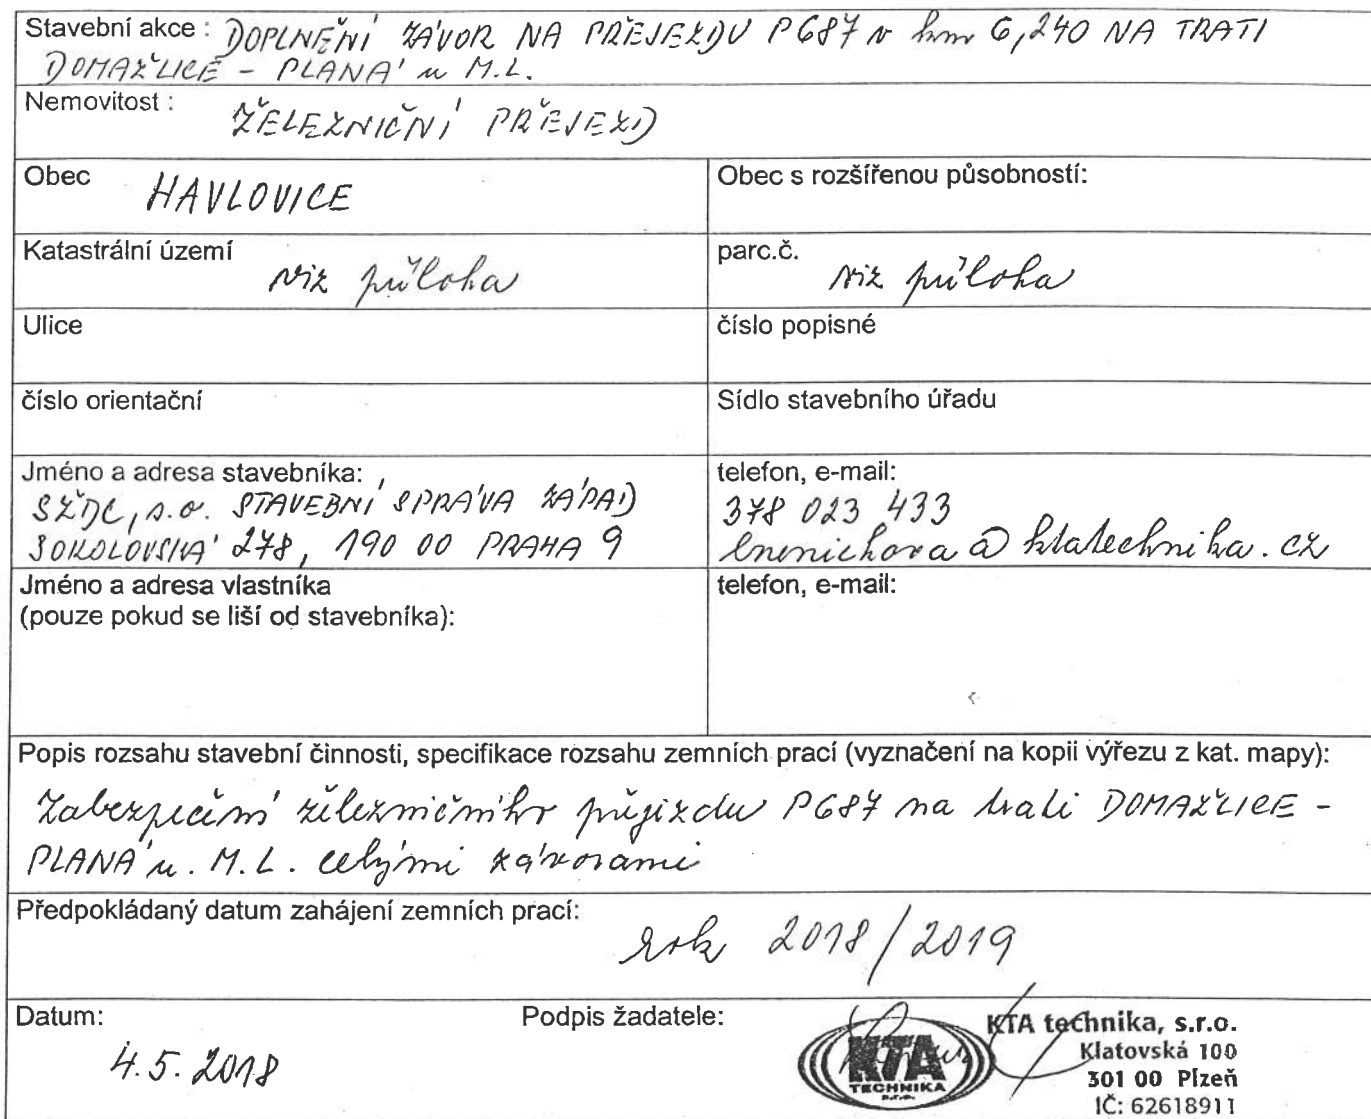 Stavební akce : DOPLNĚNÍ ZÁVOR NA PŘEJEZDU P687 v km 6,240 NA TRATI
DOMAŽLICE - PLANÁ u M.L.
Nemovitost :
ŽELEZNIČNÍ PŘEJEZD
Obec HAVLOVICE
Obec s rozšířenou působností:
Katastrální území
viz příloha
parc.č.
viz příloha
Ulice
číslo popisné
číslo orientační
Sídlo stavebního úřadu
Jméno a adresa stavebníka:
SŽDC, s.o. STAVEBNÍ SPRÁVA ZÁPAD
SOKOLOVSKÁ 278, 190 00 PRAHA 9
telefon, e-mail:
378 023 433
lnenickova@ktatechnika.cz
Jméno a adresa vlastníka
(pouze pokud se liší od stavebníka):
telefon, e-mail:
Popis rozsahu stavební činnosti, specifikace rozsahu zemních prací (vyznačení na kopii výřezu z kat. mapy):
Zabezpečení železničního přejezdu P687 na trati DOMAŽLICE -
PLANÁ u. M.L. celými závorami
Předpokládaný datum zahájení zemních prací:
rok 2018/2019
Datum:
4.5.2018
Podpis žadatele:
KTA
TECHNIKA
s.r.o.
KTA technika, s.r.o.
Klatovská 100
301 00 Plzeň
IČ: 62618911